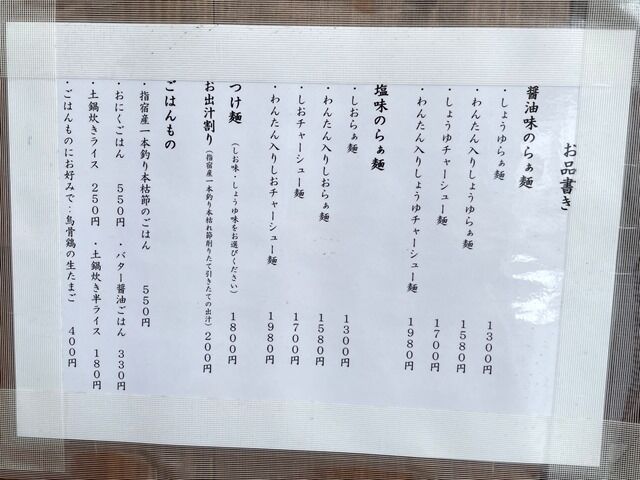 お品書き
醤油味のらぁ麺
・しょうゆらぁ麺 1300円
・わんたん入りしょうゆらぁ麺 1580円
・しょうゆチャーシュー麺 1700円
・わんたん入りしょうゆチャーシュー麺 1980円
塩味のらぁ麺
・しおらぁ麺 1300円
・わんたん入りしおらぁ麺 1580円
・しおチャーシュー麺 1700円
・わんたん入りしおチャーシュー麺 1980円
つけ麺 (しお味・しょうゆ味をお選びください) 1800円
お出汁割り (指宿産一本釣り本枯れ節削りたて引きたての出汁) 200円
ごはんもの
・指宿産一本釣り本枯節のごはん 550円
・おにくごはん 550円 ・バター醤油ごはん 330円
・土鍋炊きライス 250円 ・土鍋炊き半ライス 180円
・ごはんものにお好みで…烏骨鶏の生たまご 400円